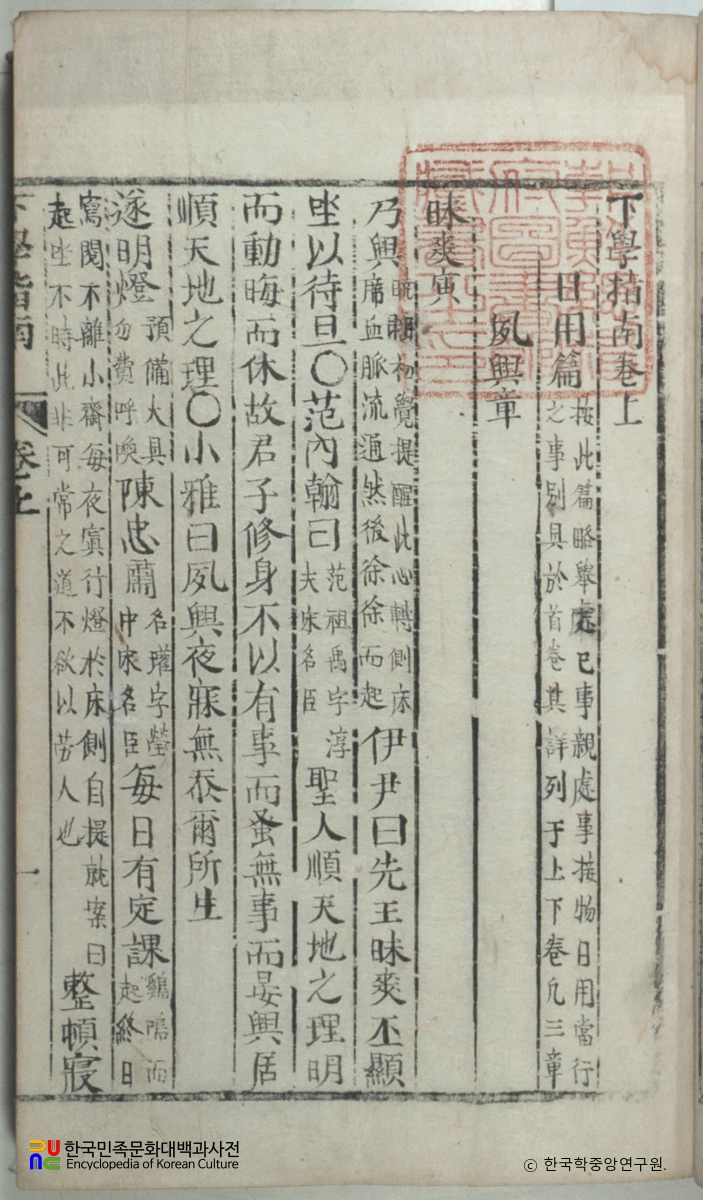 下學指南卷上
日用篇 按此篇略舉處己事親處事接物日用當行
之事別具於首卷其詳列于上下卷凡三章
夙興章
昧爽寅
乃興 初覺提醒此心轉側床
席血脈流通然後徐徐而起 伊尹曰先王昧爽丕顯
坐以待旦〇范內翰曰 范祖禹字淳
夫宋名臣 聖人順天地之理明
而動晦而休故君子修身不以有事而蚤無事而晏興居
順天地之理〇小雅曰夙興夜寐無忝爾所生
遂明燈 預備火具
勿費呼喚 陳忠肅 名瓘字瑩
中宋名臣 每日有定課 鷄鳴而
起終日
寫閱不離小齋每夜寘行燈於床側自提就案曰
起坐不時此非可常之道不欲以勞人也 整頓寢
下學指南 卷上 一
한국민족문화대백과사전
Encyclopedia of Korean Culture
ⓒ 한국학중앙연구원.